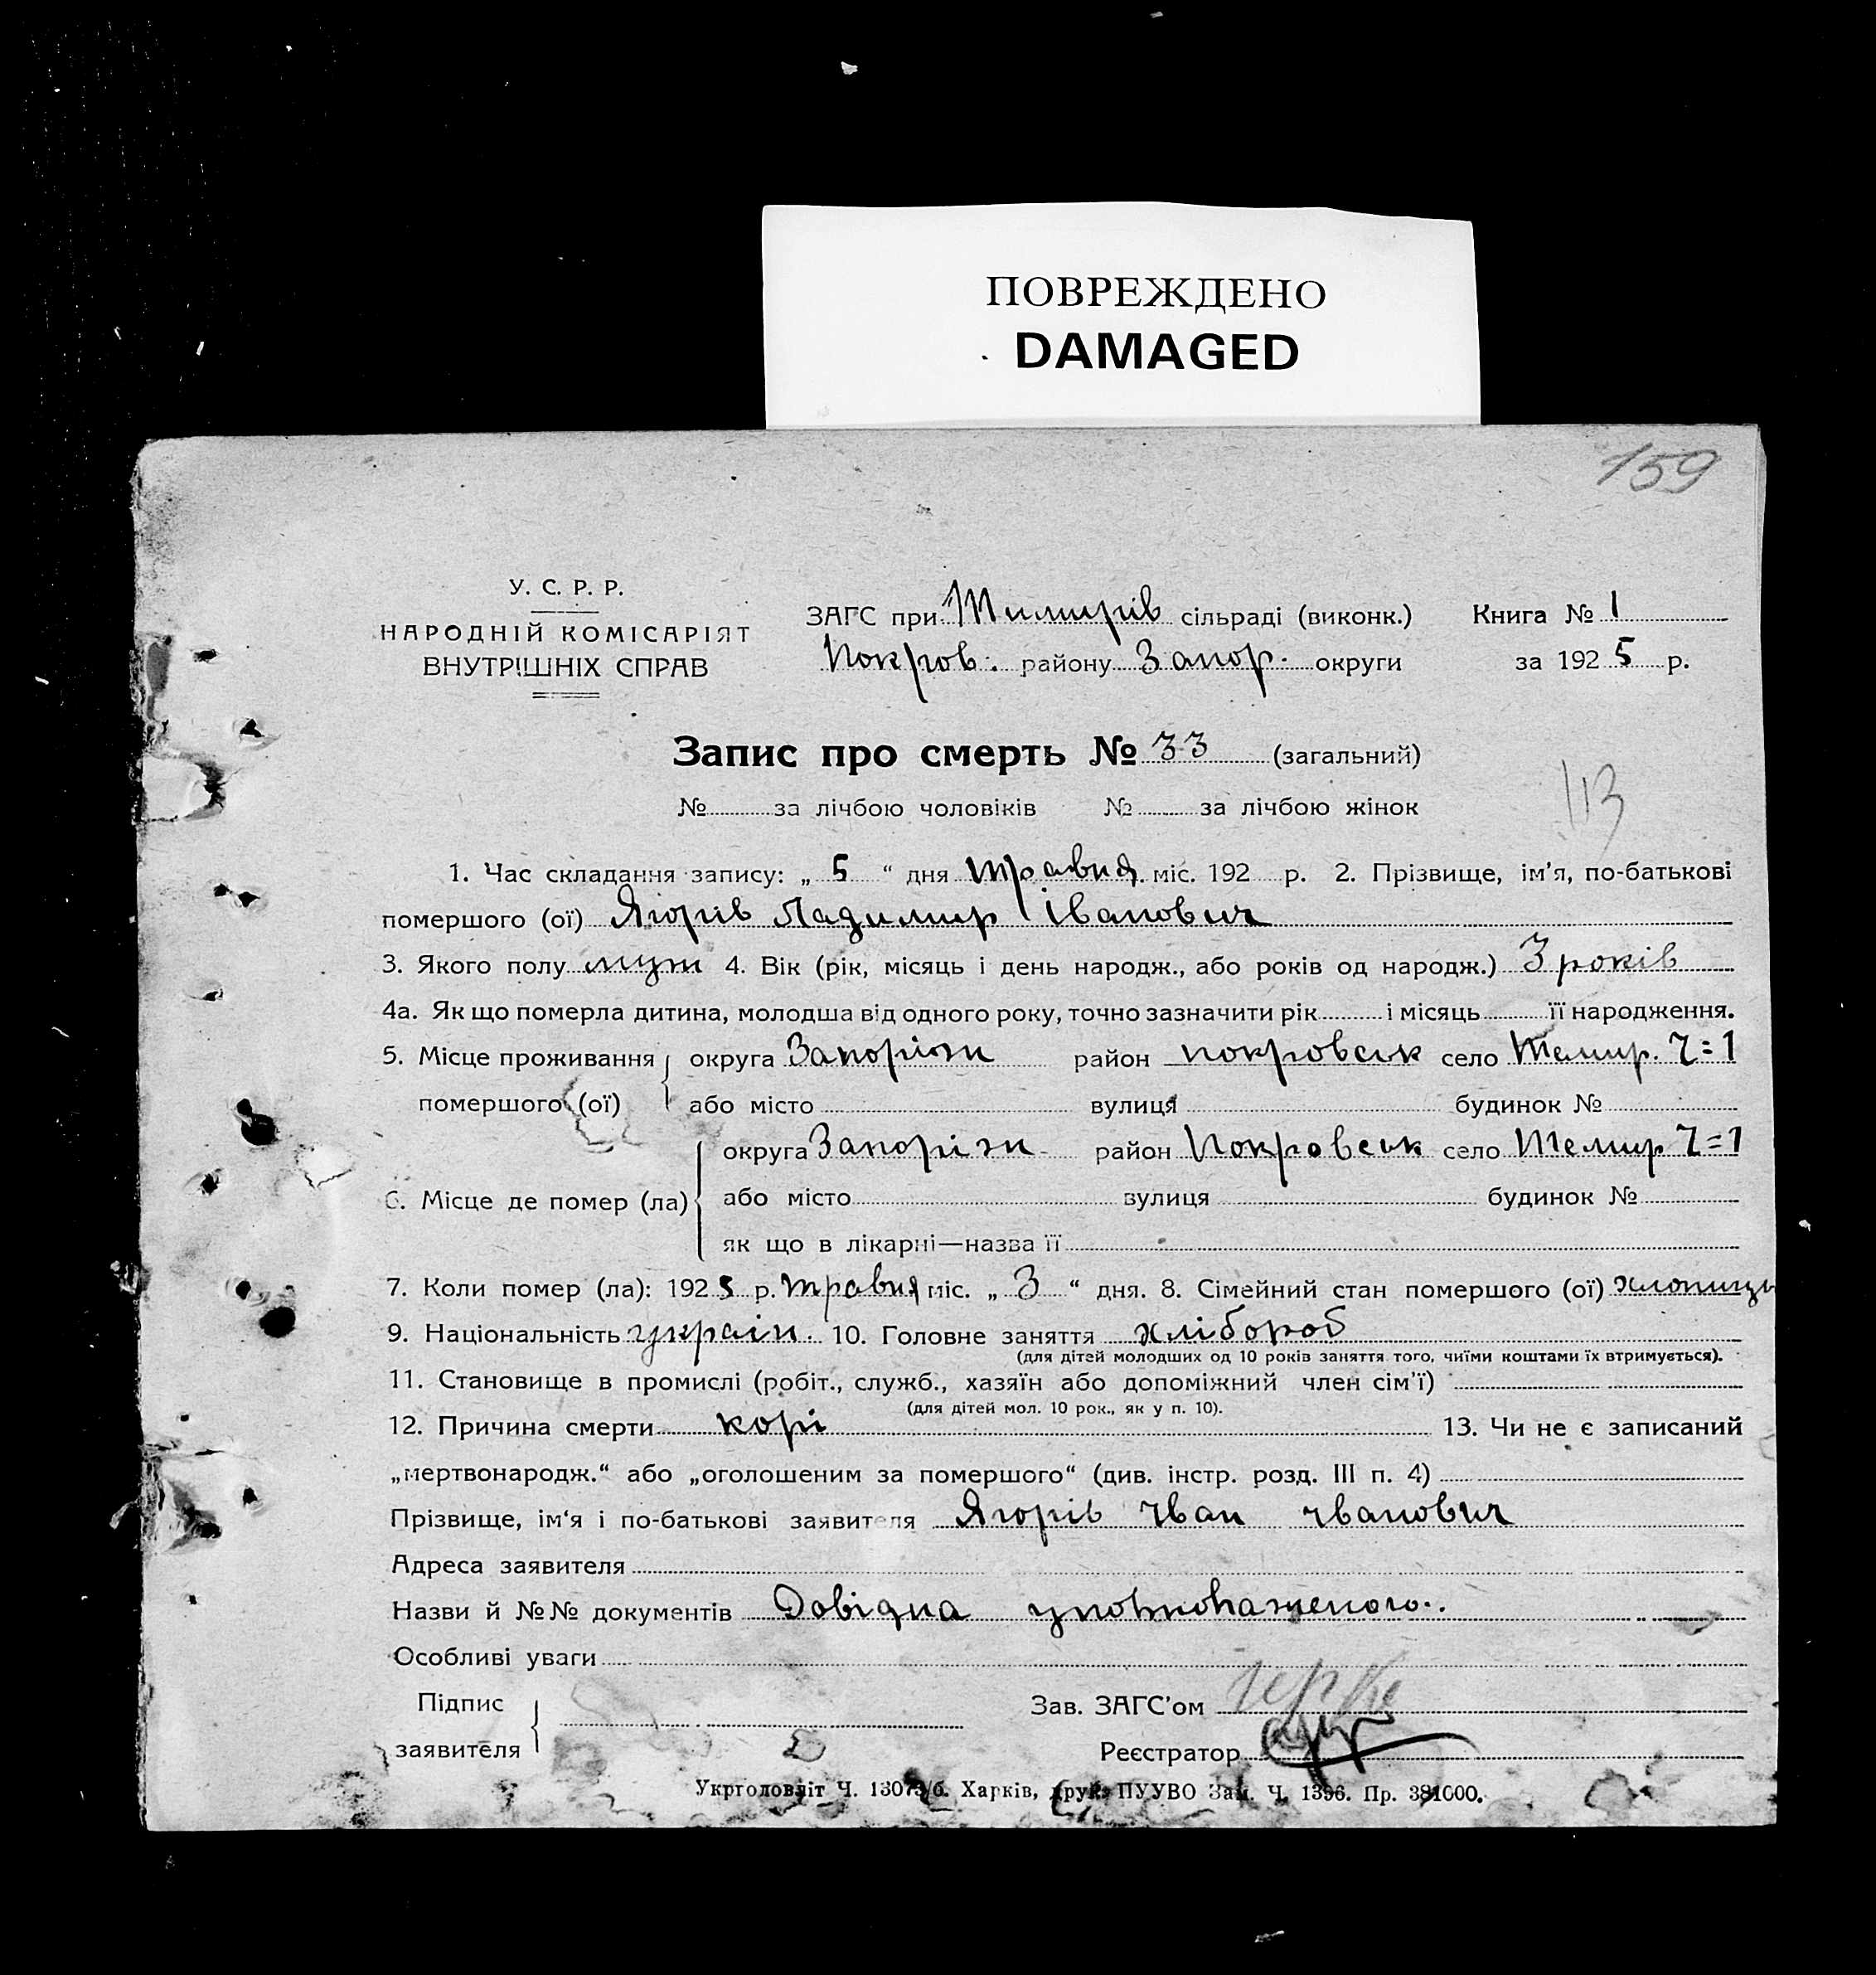 ПОВРЕЖДЕНО
DAMAGED
159
У. С. Р. Р.
НАРОДНІЙ КОМІСАРІЯТ
ВНУТРІШНІХ СПРАВ
ЗАГС при Тимирів сільраді (виконк.) Книга № 1
Покров. району Запор. округи за 1925 р.
Запис про смерть № 33 (загальний)
№ за лічбою чоловіків № за лічбою жінок
113
1. Час складання запису: „ 5 “ дня травня міс. 192 р. 2. Прізвище, ім’я, по-батькові
помершого (ої) Ягорів Ладимир Іванович
3. Якого полу муж 4. Вік (рік, місяць і день народж., або років од народж.) 3 років
4а. Як що померла дитина, молодша від одного року, точно зазначити рік і місяць її народження.
5. Місце проживання округа Запоріжж район покровськ село Темир. Ч=1
помершого (ої) або місто вулиця будинок №
округа Запоріжж район Покровськ село Темир Ч=1
6. Місце де помер (ла)
або місто вулиця будинок №
як що в лікарні—назва її
7. Коли помер (ла): 1925 р. травня міс. „ 3 “ дня. 8. Сімейний стан помершого (ої) хлопиць
9. Національність украін. 10. Головне заняття хлібороб
(для дітей молодших од 10 років заняття того, чиїми коштами їх втримується).
11. Становище в промислі (робіт., служб., хазяїн або допоміжний член сім’ї)
(для дітей мол. 10 рок., як у п. 10).
12. Причина смерти корі 13. Чи не є записаний
„мертвонародж.“ або „оголошеним за помершого“ (див. інстр. розд. III п. 4)
Прізвище, ім‘я і по-батькові заявителя Ягорів Іван Іванович
Адреса заявителя
Назви й №№ документів Довідка
Особливі уваги
Підпис
заявителя
Зав. ЗАГС’ом
Реєстратор
Укрголовліт Ч. 13073/б. Харків, друк. ПУУВО Зам. Ч. 1396. Пр. 381000.